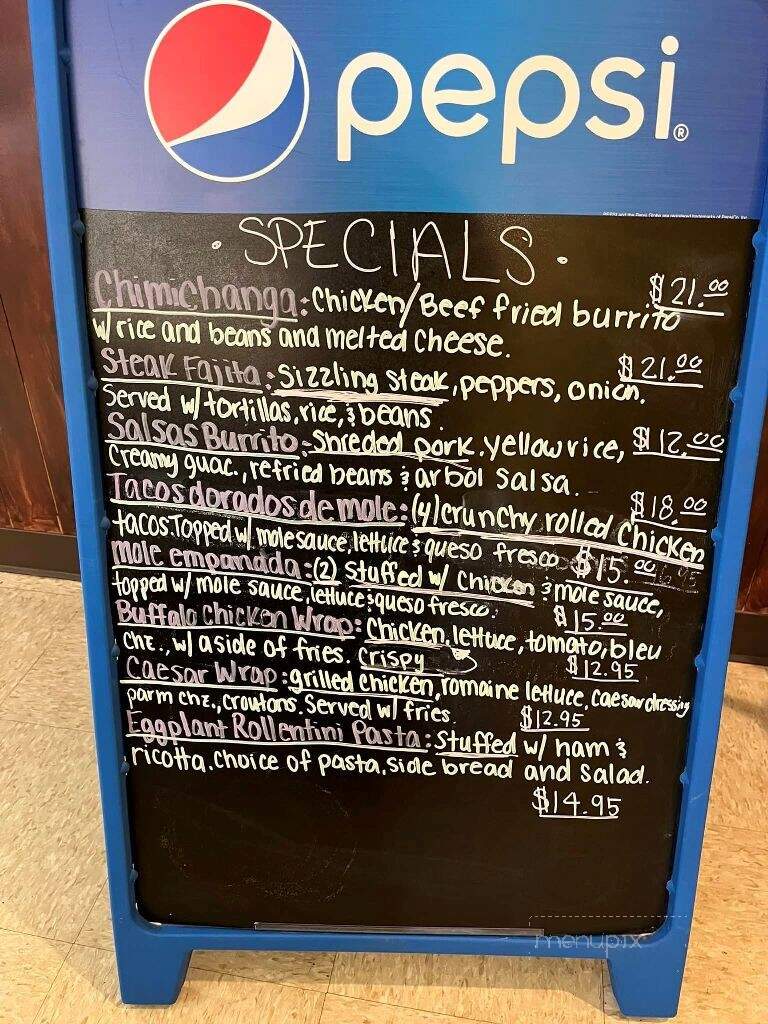 pepsi®
• SPECIALS •
Chimichanga: Chicken/Beef fried burrito $21.00
w/ rice and beans and melted cheese.
Steak Fajita: Sizzling steak, peppers, onion. $21.00
Served w/ tortillas, rice, & beans.
Salsas Burrito: Shreded pork. yellow rice, $12.00
Creamy guac., refried beans & arbol salsa.
Tacos dorados de mole: (4) crunchy rolled chicken $18.00
tacos. Topped w/ mole sauce, lettuce & queso fresco. $15.00
mole empanada: (2) Stuffed w/ chicken & mole sauce,
topped w/ mole sauce, lettuce & queso fresco. $15.00
Buffalo Chicken Wrap: Chicken, lettuce, tomato, bleu
chz., w/ a side of fries. crispy $12.95
Caesar Wrap: grilled chicken, romaine lettuce, caesar dressing
parm chz., croutons. Served w/ fries. $12.95
Eggplant Rollentini Pasta: Stuffed w/ ham &
ricotta. Choice of pasta, side bread and salad.
$14.95
menupix